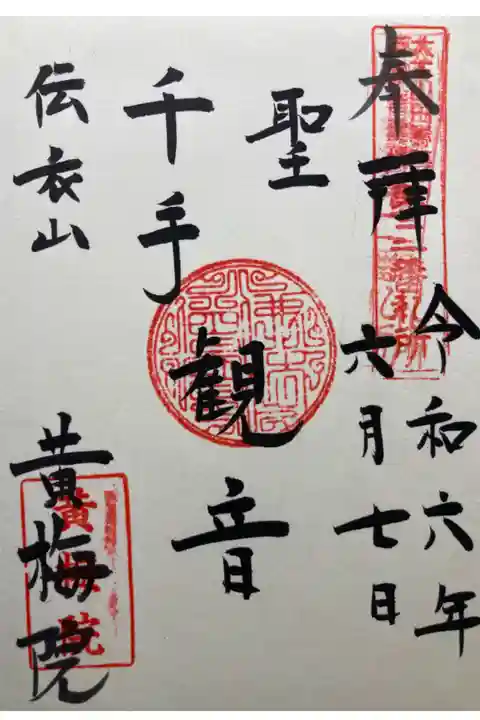 奉拝
令和六年
六月七日
聖
千手
観音
伝衣山
黄梅院
三番札所
黄梅院